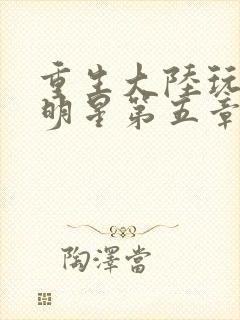 重生大陸玩
明星第五章
陶澤當